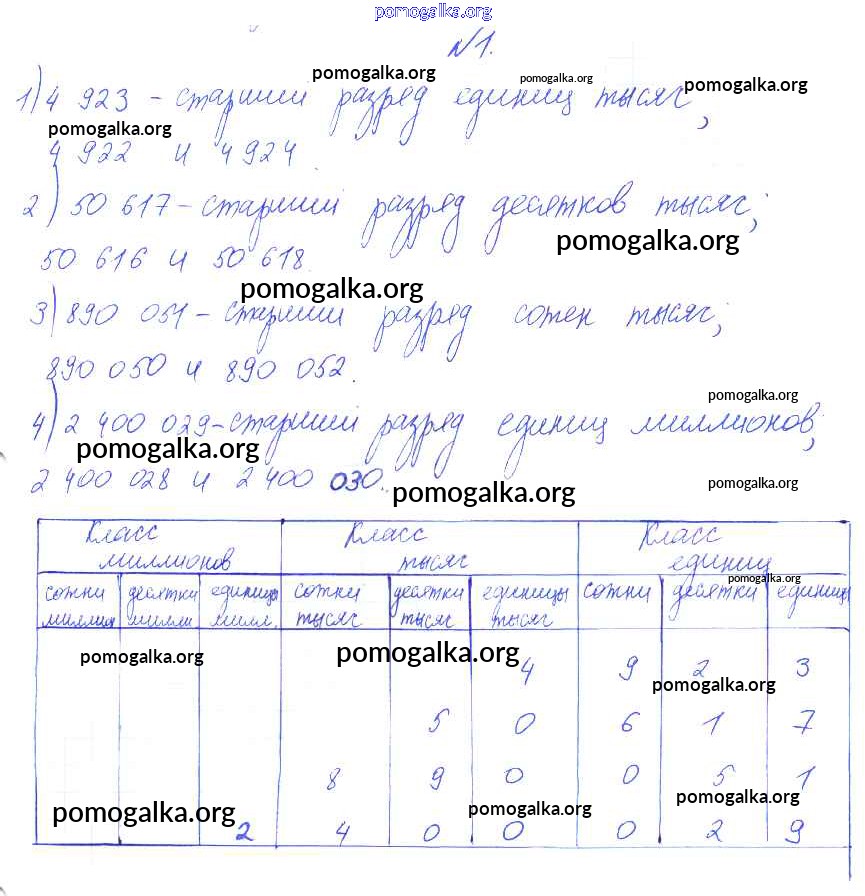 pomogalka.org
№1.
pomogalka.org pomogalka.org pomogalka.org
1) 4 923 – старший разряд единиц тысяч,
pomogalka.org
4 922 и 4 924.
2) 50 617 – старший разряд десятков тысяч;
pomogalka.org
50 616 и 50 618.
pomogalka.org
3) 890 051 – старший разряд сотен тысяч;
890 050 и 890 052.
pomogalka.org
4) 2 400 029 – старший разряд единиц миллионов;
pomogalka.org
2 400 028 и 2 400 030.
pomogalka.org pomogalka.org
Класс миллионов Класс тысяч Класс единиц
pomogalka.org
сотни миллион десятки милли единицы милл. сотни тысяч десятки тысяч единицы тысяч сотни десятки единицы
pomogalka.org pomogalka.org
4 9 2 3
pomogalka.org
5 0 6 1 7
8 9 0 0 5 1
pomogalka.org pomogalka.org pomogalka.org
2 4 0 0 0 2 9